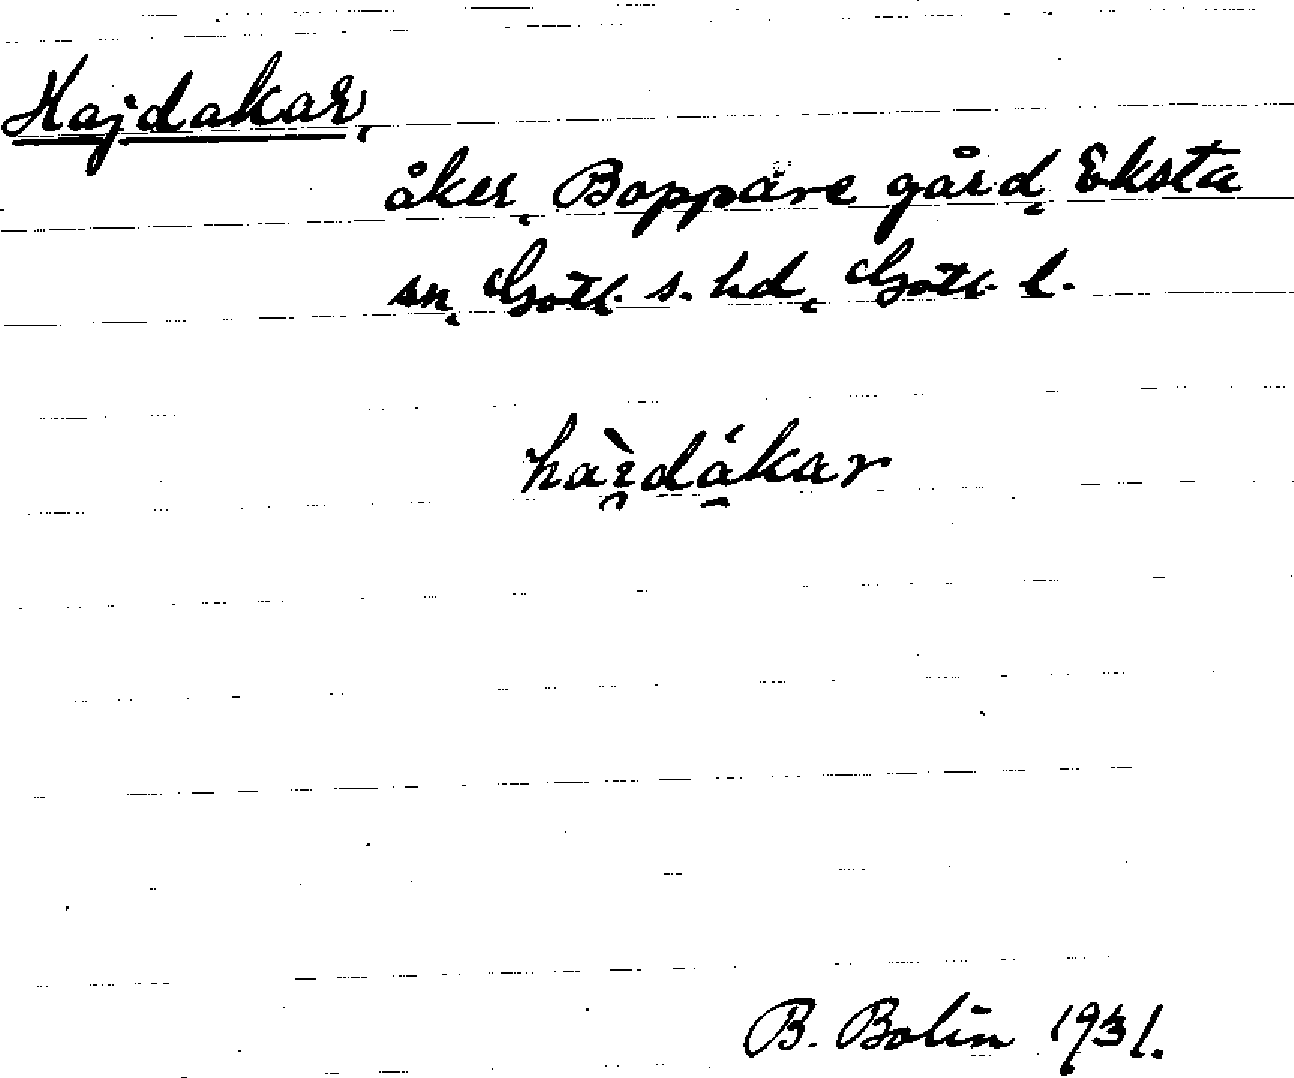 Hajdakar,
åker, Boppäre gård, Eksta
sn, Gotl. s. hd, Gotl. l.
B. Bolin 1931.